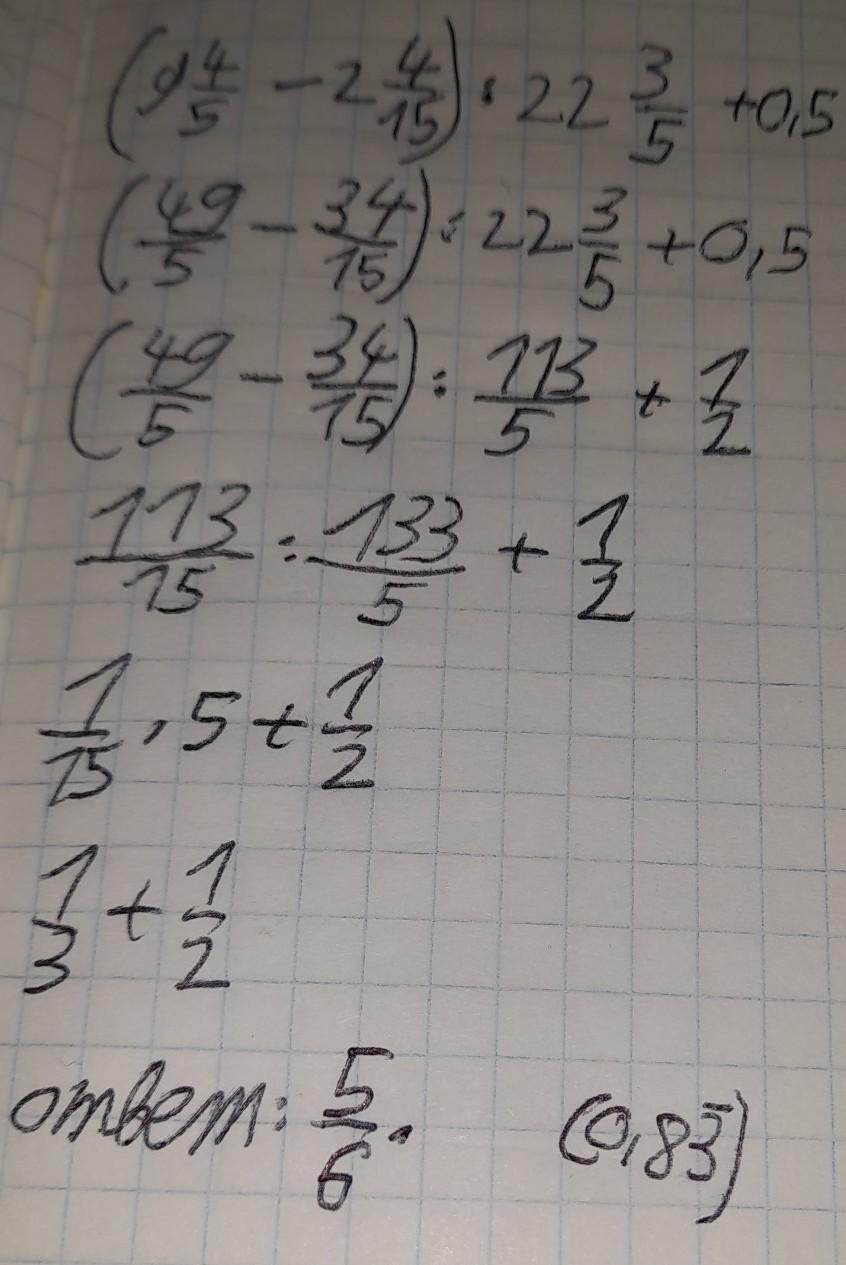 (9 4/5 - 2 4/15) : 22 3/5 + 0,5
(49/5 - 34/15) : 22 3/5 + 0,5
(49/5 - 34/15) : 113/5 + 1/2
113/15 : 133/5 + 1/2
1/15 · 5 + 1/2
1/3 + 1/2
ответ: 5/6. (0,83̅)